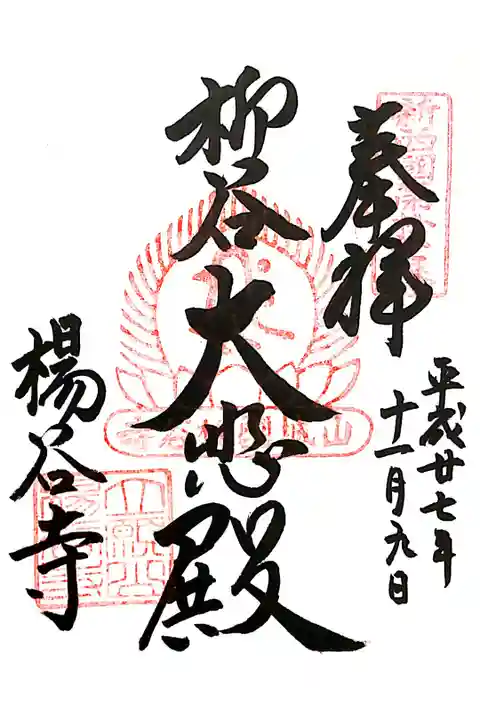 奉拝
平成廿七年
十一月九日
柳谷
大悲殿
楊谷寺